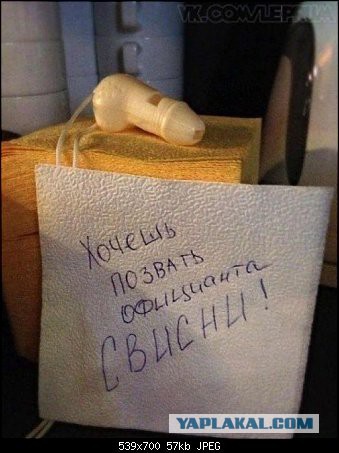 VK.COM/LEPRUM
Хочешь
позвать
официанта
СВИСНИ!
YAPLAKAL.COM
539x700 57kb JPEG